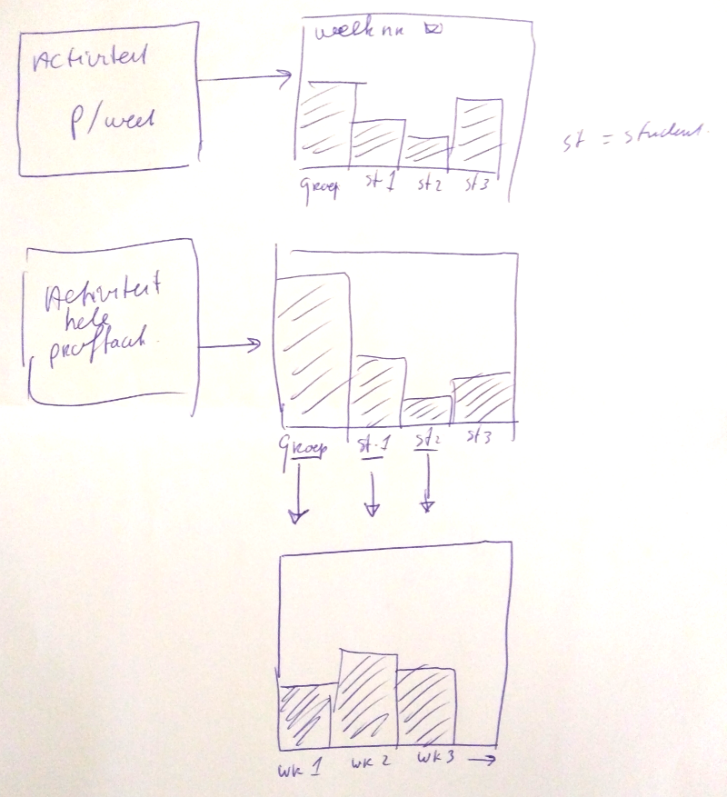 Activiteit
p/week
weeknr
groep st-1 st2 st3
st = student.
Activiteit
hele
proftaak.
groep st-1 st2 st3
wk 1 wk 2 wk 3